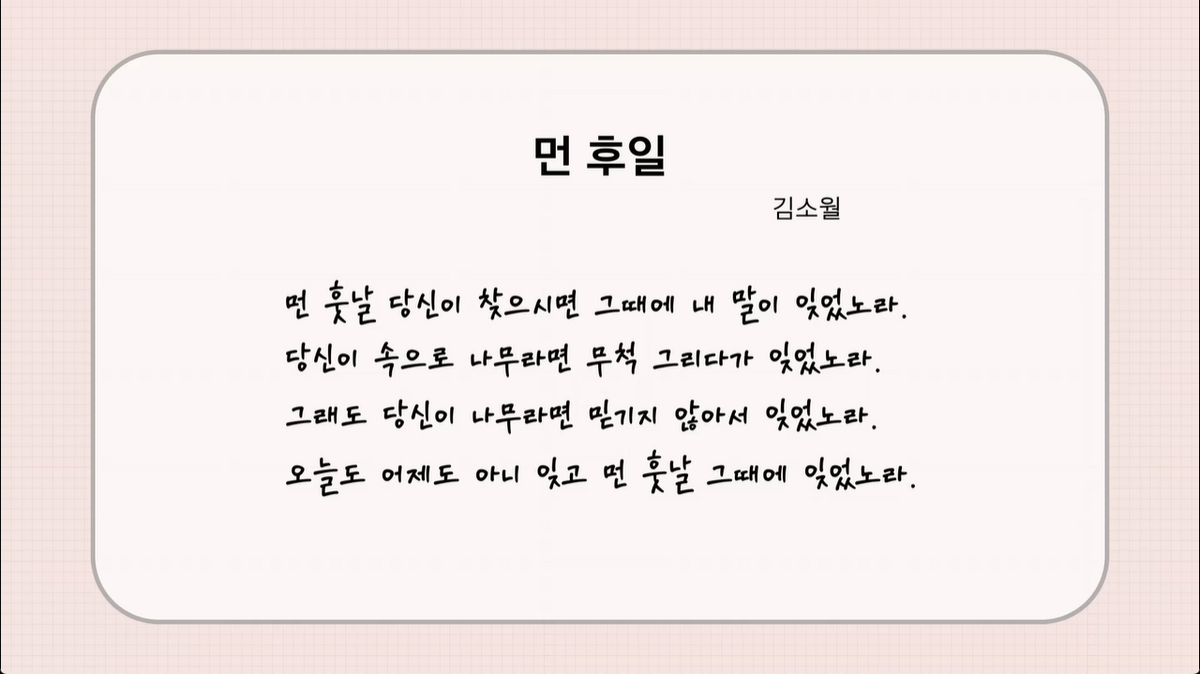 먼 후일
김소월
먼 훗날 당신이 찾으시면 그때에 내 말이 잊었노라.
당신이 속으로 나무라면 무척 그리다가 잊었노라.
그래도 당신이 나무라면 믿기지 않아서 잊었노라.
오늘도 어제도 아니 잊고 먼 훗날 그때에 잊었노라.